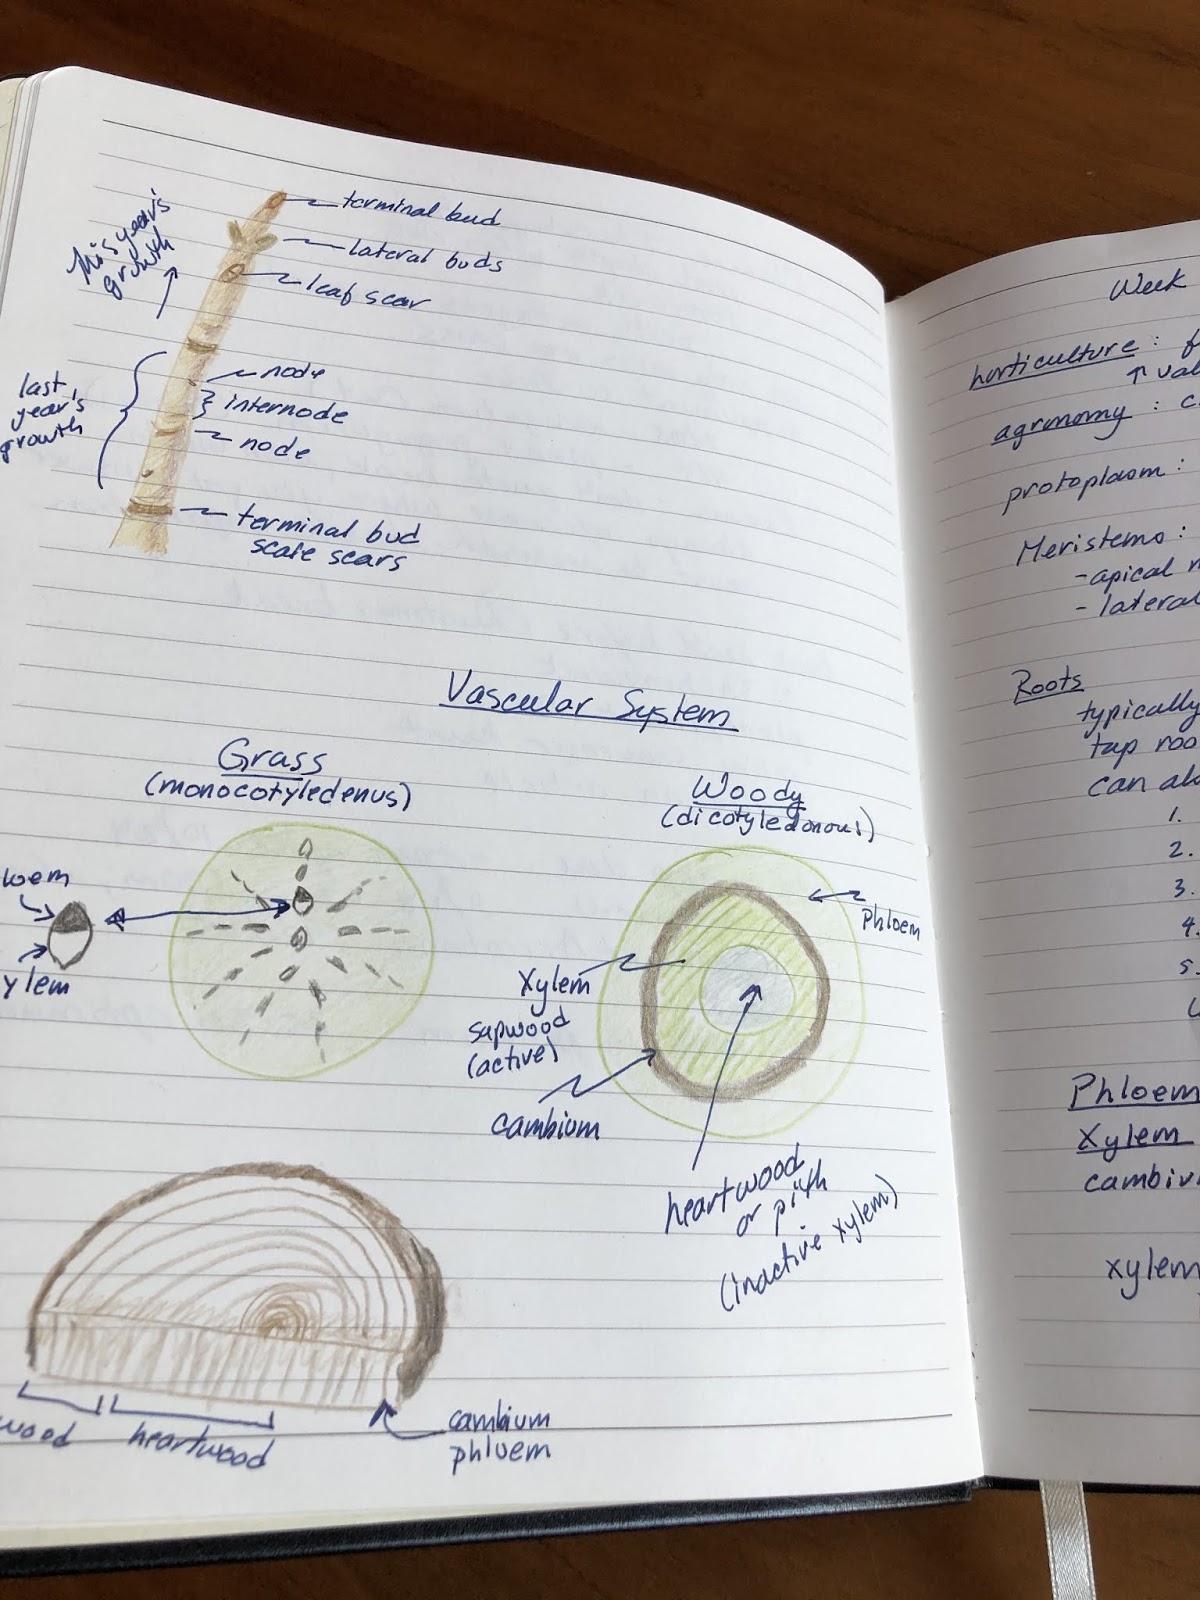 this year's
growth
terminal bud
lateral buds
leaf scar
last
year's
growth
node
internode
node
terminal bud
scale scars
Vascular System
Grass
(monocotyledenus)
Woody
(dicotyledonous)
loem
ylem
Phloem
Xylem
sapwood
(active)
cambium
heartwood
or pith
(inactive xylem)
wood
heartwood
cambium
phloem
Week
horticulture : f
↑ val
agronomy : c
protoplasm :
Meristems :
- apical m
- lateral
Roots
typically
tap roo
can als
1.
2.
3.
4.
5.
Phloem
Xylem
cambiu
xylem